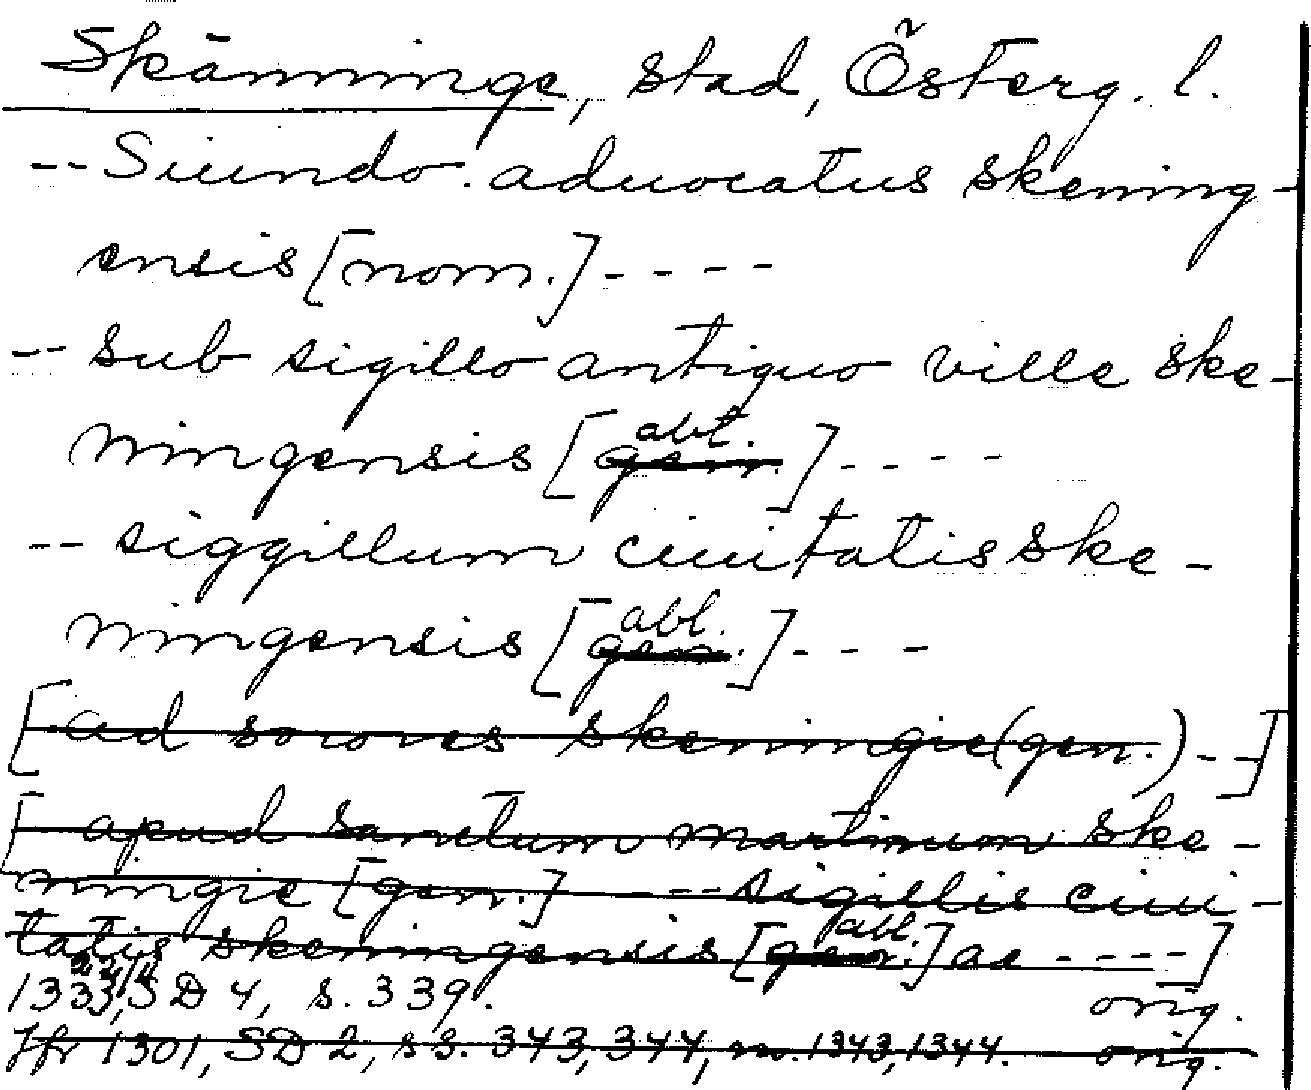 Skänninge, stad, Österg. l.
-- Siundo aduocatus skening-
ensis [nom.] ----
-- sub sigillo antiquo ville ske-
ningensis [gen. abl.] ----
-- siggillum ciuitatis ske-
ningensis [gen. abl.] ---
[ad sorores skeningie (gen.) --]
[apud sanctum martinum ske-
ningie [gen.] --- sigillis ciui-
tatis skeningensis [gen. abl.] ac ----]
1333, SD 4, s. 339. orig.
Jfr 1301, SD 2, ss. 343, 344, n. 1343, 1344. orig.